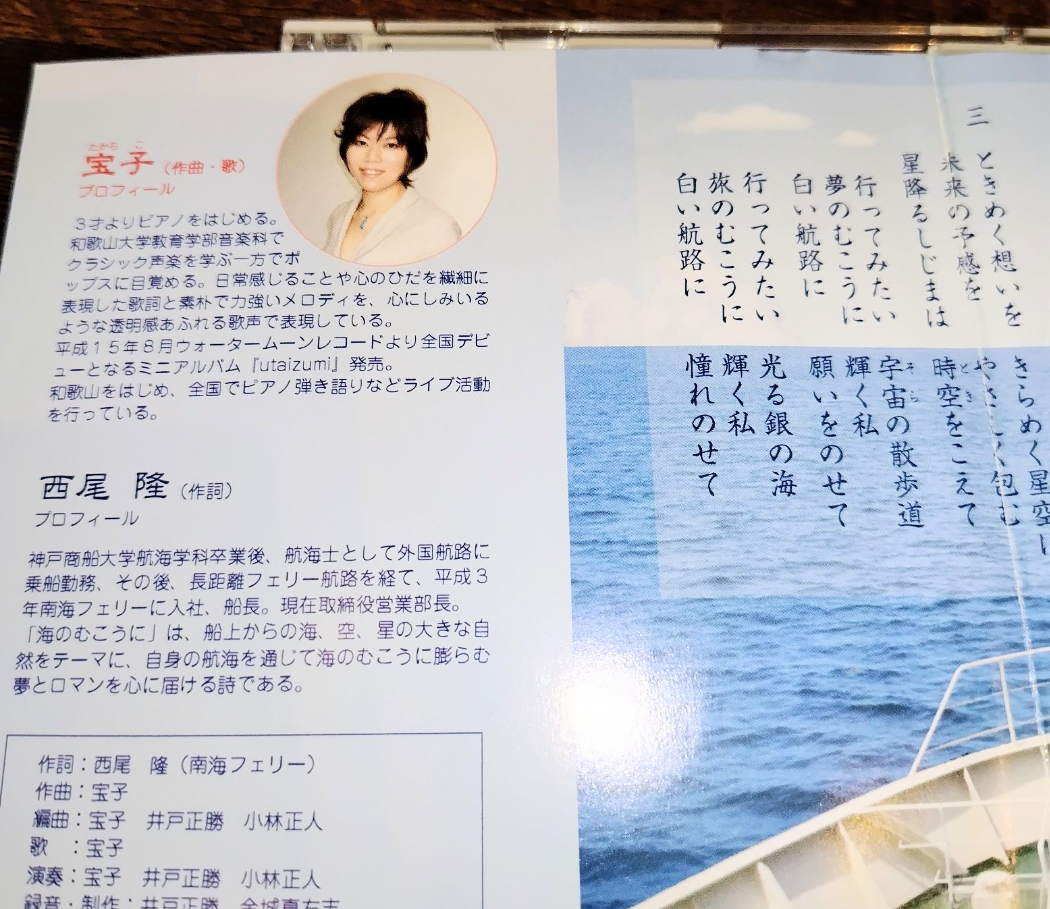 たから こ
宝子（作曲・歌）
プロフィール
３才よりピアノをはじめる。
和歌山大学教育学部音楽科で
クラシック声楽を学ぶ一方でポ
ップスに目覚める。日常感じることや心のひだを繊細に
表現した歌詞と素朴で力強いメロディを、心にしみいる
ような透明感あふれる歌声で表現している。
平成１５年８月ウォータームーンレコードより全国デビ
ューとなるミニアルバム『utaizumi』発売。
和歌山をはじめ、全国でピアノ弾き語りなどライブ活動
を行っている。
西尾 隆（作詞）
プロフィール
神戸商船大学航海学科卒業後、航海士として外国航路に
乗船勤務、その後、長距離フェリー航路を経て、平成３
年南海フェリーに入社、船長。現在取締役営業部長。
「海のむこうに」は、船上からの海、空、星の大きな自
然をテーマに、自身の航海を通じて海のむこうに膨らむ
夢とロマンを心に届ける詩である。
作詞：西尾　隆（南海フェリー）
作曲：宝子
編曲：宝子　井戸正勝　小林正人
歌　：宝子
演奏：宝子　井戸正勝　小林正人
録音・制作：井戸正勝
三
ときめく想いを
未来の予感を
星降るしじまは
行ってみたい
夢のむこうに
白い航路に
行ってみたい
旅のむこうに
白い航路に
きらめく星空に
やさしく包む
時空をこえて
とき
宇宙の散歩道
そら
輝く私
願いをのせて
光る銀の海
輝く私
憧れのせて